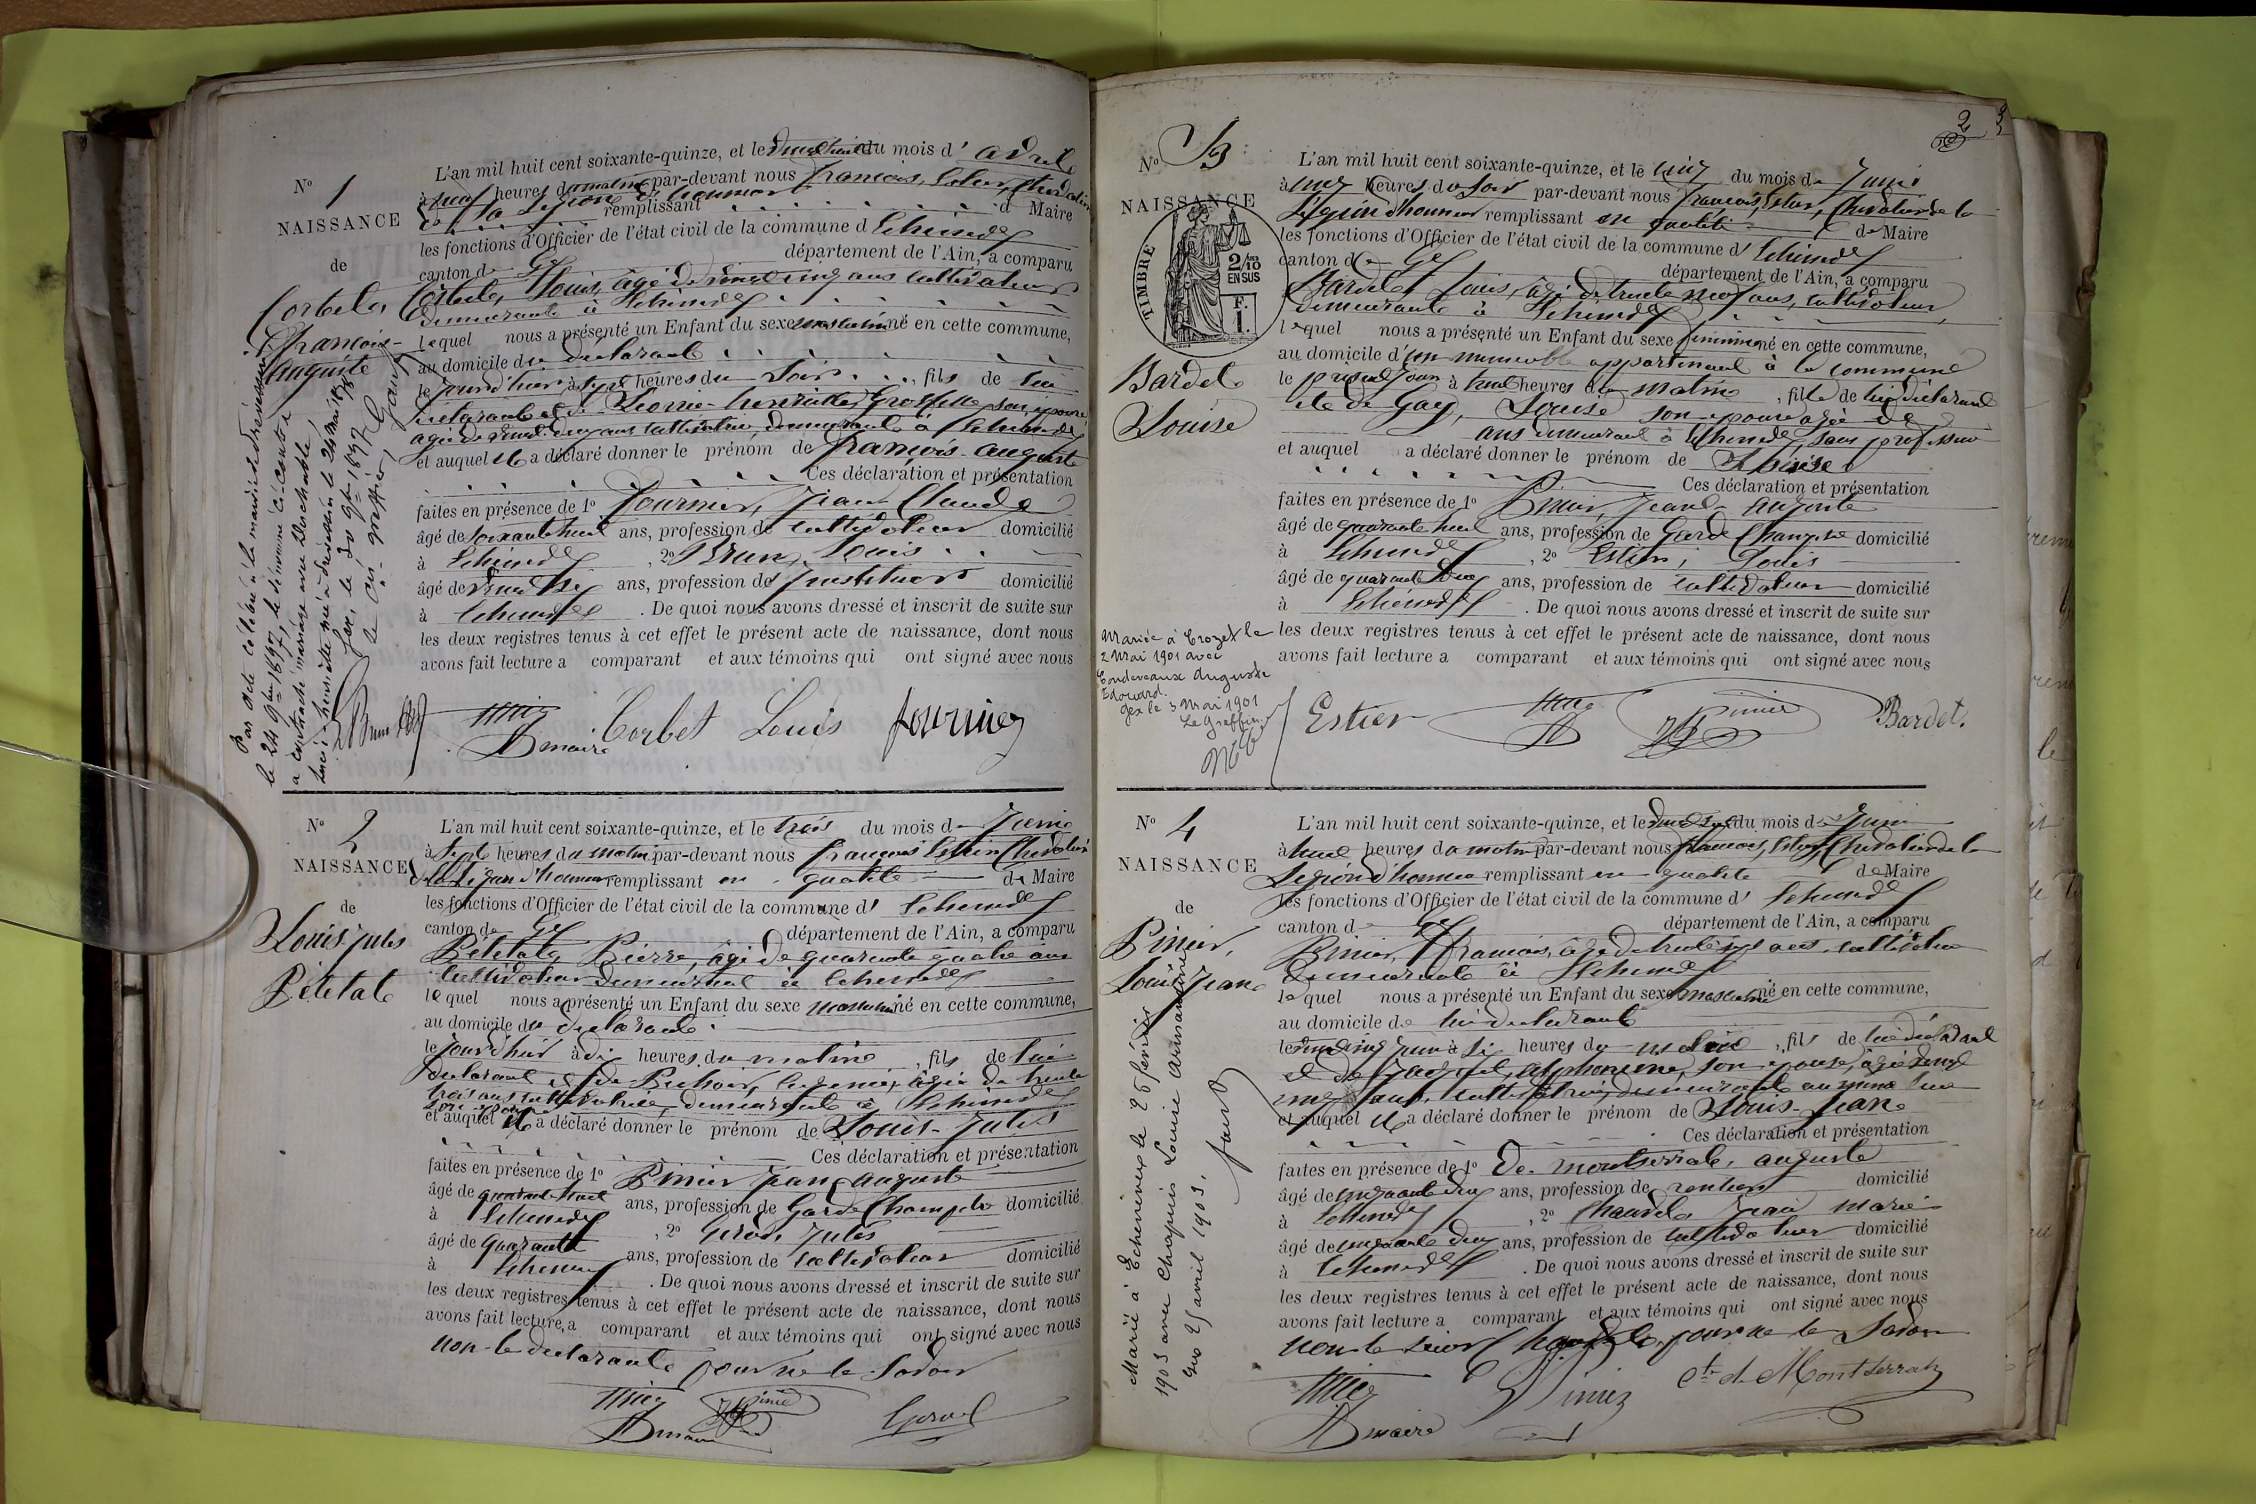 N° 1
NAISSANCE
de
Corbet
François-
Auguste
L'an mil huit cent soixante-quinze, et le du mois d' avril
à neuf heures du matin par-devant nous François, Estier Chevalier
de la Légion d'honneur remplissant d Maire
les fonctions d'Officier de l'état civil de la commune d' Echenevex
canton de Gex département de l'Ain, a comparu
Corbet, Louis, âgé de vingt cinq ans cultivateur
demeurant à Echenevex
lequel nous a présenté un Enfant du sexe masculin né en cette commune,
au domicile du déclarant
le jour d'hier à sept heures du soir, fils de lui
déclarant et de Léonie-henriette son épouse
âgée de vingt-deux ans cultivatrice demeurant à Echenevex
et auquel il a déclaré donner le prénom de François-Auguste
Ces déclaration et présentation
faites en présence de 1° Fournier, Jean Claude
âgé de soixante huit ans, profession de cultivateur domicilié
à Echenevex, 2° Brun, Louis
âgé de vingt six ans, profession d' Instituteur domicilié
à Echenevex. De quoi nous avons dressé et inscrit de suite sur
les deux registres tenus à cet effet le présent acte de naissance, dont nous
avons fait lecture a comparant et aux témoins qui ont signé avec nous
Par acte célébré à la mairie de
le 24 9bre 1897, le dénommé ci-contre
a contracté mariage avec
née à le 24 mai 1878
Gex, le 30 9bre 1897
Le greffier,
L Brun
maire
Corbet Louis
fournier
N° 2
NAISSANCE
de
Louis Jules
Pételat
L'an mil huit cent soixante-quinze, et le trois du mois de Juin
à sept heures du matin par-devant nous François Estier Chevalier
de la Légion d'honneur remplissant en qualité de Maire
les fonctions d'Officier de l'état civil de la commune d' Echenevex
canton de Gex département de l'Ain, a comparu
Pételat, Pierre, âgé de quarante quatre ans
cultivateur demeurant à Echenevex
lequel nous a présenté un Enfant du sexe masculin né en cette commune,
au domicile du déclarant
le jour d'hier à dix heures du matin, fils de lui
déclarant et de Eugénie, âgée de trente
trois ans cultivatrice, demeurant à Echenevex
son épouse
et auquel il a déclaré donner le prénom de Louis-Jules
Ces déclaration et présentation
faites en présence de 1° Pinier Jean Auguste
âgé de quarante huit ans, profession de Garde Champêtre domicilié
à Echenevex, 2° Girod, Jules
âgé de quarante ans, profession de cultivateur domicilié
à Echenevex. De quoi nous avons dressé et inscrit de suite sur
les deux registres tenus à cet effet le présent acte de naissance, dont nous
avons fait lecture, a comparant et aux témoins qui ont signé avec nous
non le déclarant pour ne le savoir
maire
Pinier
Girod
2
N° 3
NAISSANCE
TIMBRE
2/10
EN SUS
F.
1.
Bardet
Louise
L'an mil huit cent soixante-quinze, et le cinq du mois de Juin
à cinq heures du soir par-devant nous François, Estier, Chevalier de la
Légion d'honneur remplissant en qualité de Maire
les fonctions d'Officier de l'état civil de la commune d' Echenevex
canton de Gex département de l'Ain, a comparu
Bardet Louis, âgé de trente neuf ans, cultivateur,
demeurant à Echenevex
lequel nous a présenté un Enfant du sexe féminin né en cette commune,
au domicile d'un immeuble appartenant à la commune
le présent jour à huit heures du matin, fille de lui déclarant
et de Gay, Louise son épouse âgée de
ans demeurant à Echenevex, sans profession
et auquel a déclaré donner le prénom de Louise
Ces déclaration et présentation
faites en présence de 1° Pinier, Jean-Auguste
âgé de quarante huit ans, profession de Garde Champêtre domicilié
à Echenevex, 2° Estier, Louis
âgé de quarante ans, profession de cultivateur domicilié
à Echenevex. De quoi nous avons dressé et inscrit de suite sur
les deux registres tenus à cet effet le présent acte de naissance, dont nous
avons fait lecture a comparant et aux témoins qui ont signé avec nous
Mariée à Crozet le
2 Mai 1901 avec
Condevaux Auguste
Edouard.
Gex le 3 Mai 1901
Le Greffier
Estier
Pinier
Bardet.
N° 4
NAISSANCE
de
Pinier,
Louis Jean
L'an mil huit cent soixante-quinze, et le du mois de Juin
à huit heures du matin par-devant nous François, Estier, Chevalier de la
Légion d'honneur remplissant en qualité de Maire
les fonctions d'Officier de l'état civil de la commune d' Echenevex
canton de Gex département de l'Ain, a comparu
Pinier, François, âgé de trente ans, cultivateur
demeurant à Echenevex
lequel nous a présenté un Enfant du sexe masculin né en cette commune,
au domicile de lui déclarant
le Juin à six heures du, fils de lui déclarant
et de alphonsine, son épouse, âgée de vingt
cinq ans, cultivatrice, demeurant au même lieu
et auquel il a déclaré donner le prénom de Louis-Jean
Ces déclaration et présentation
faites en présence de 1° De Montserrat, Auguste
âgé de cinquante deux ans, profession de rentier domicilié
à Echenevex, 2° Jean Marie
âgé de cinquante deux ans, profession de cultivateur domicilié
à Echenevex. De quoi nous avons dressé et inscrit de suite sur
les deux registres tenus à cet effet le présent acte de naissance, dont nous
avons fait lecture a comparant et aux témoins qui ont signé avec nous
non le sieur pour ne le savoir
Marié à Echenevex le 26 février
1903 avec Chapuis Louise Armandine
Gex avril 1903.
maire
Pinier
Cte de Montserrat